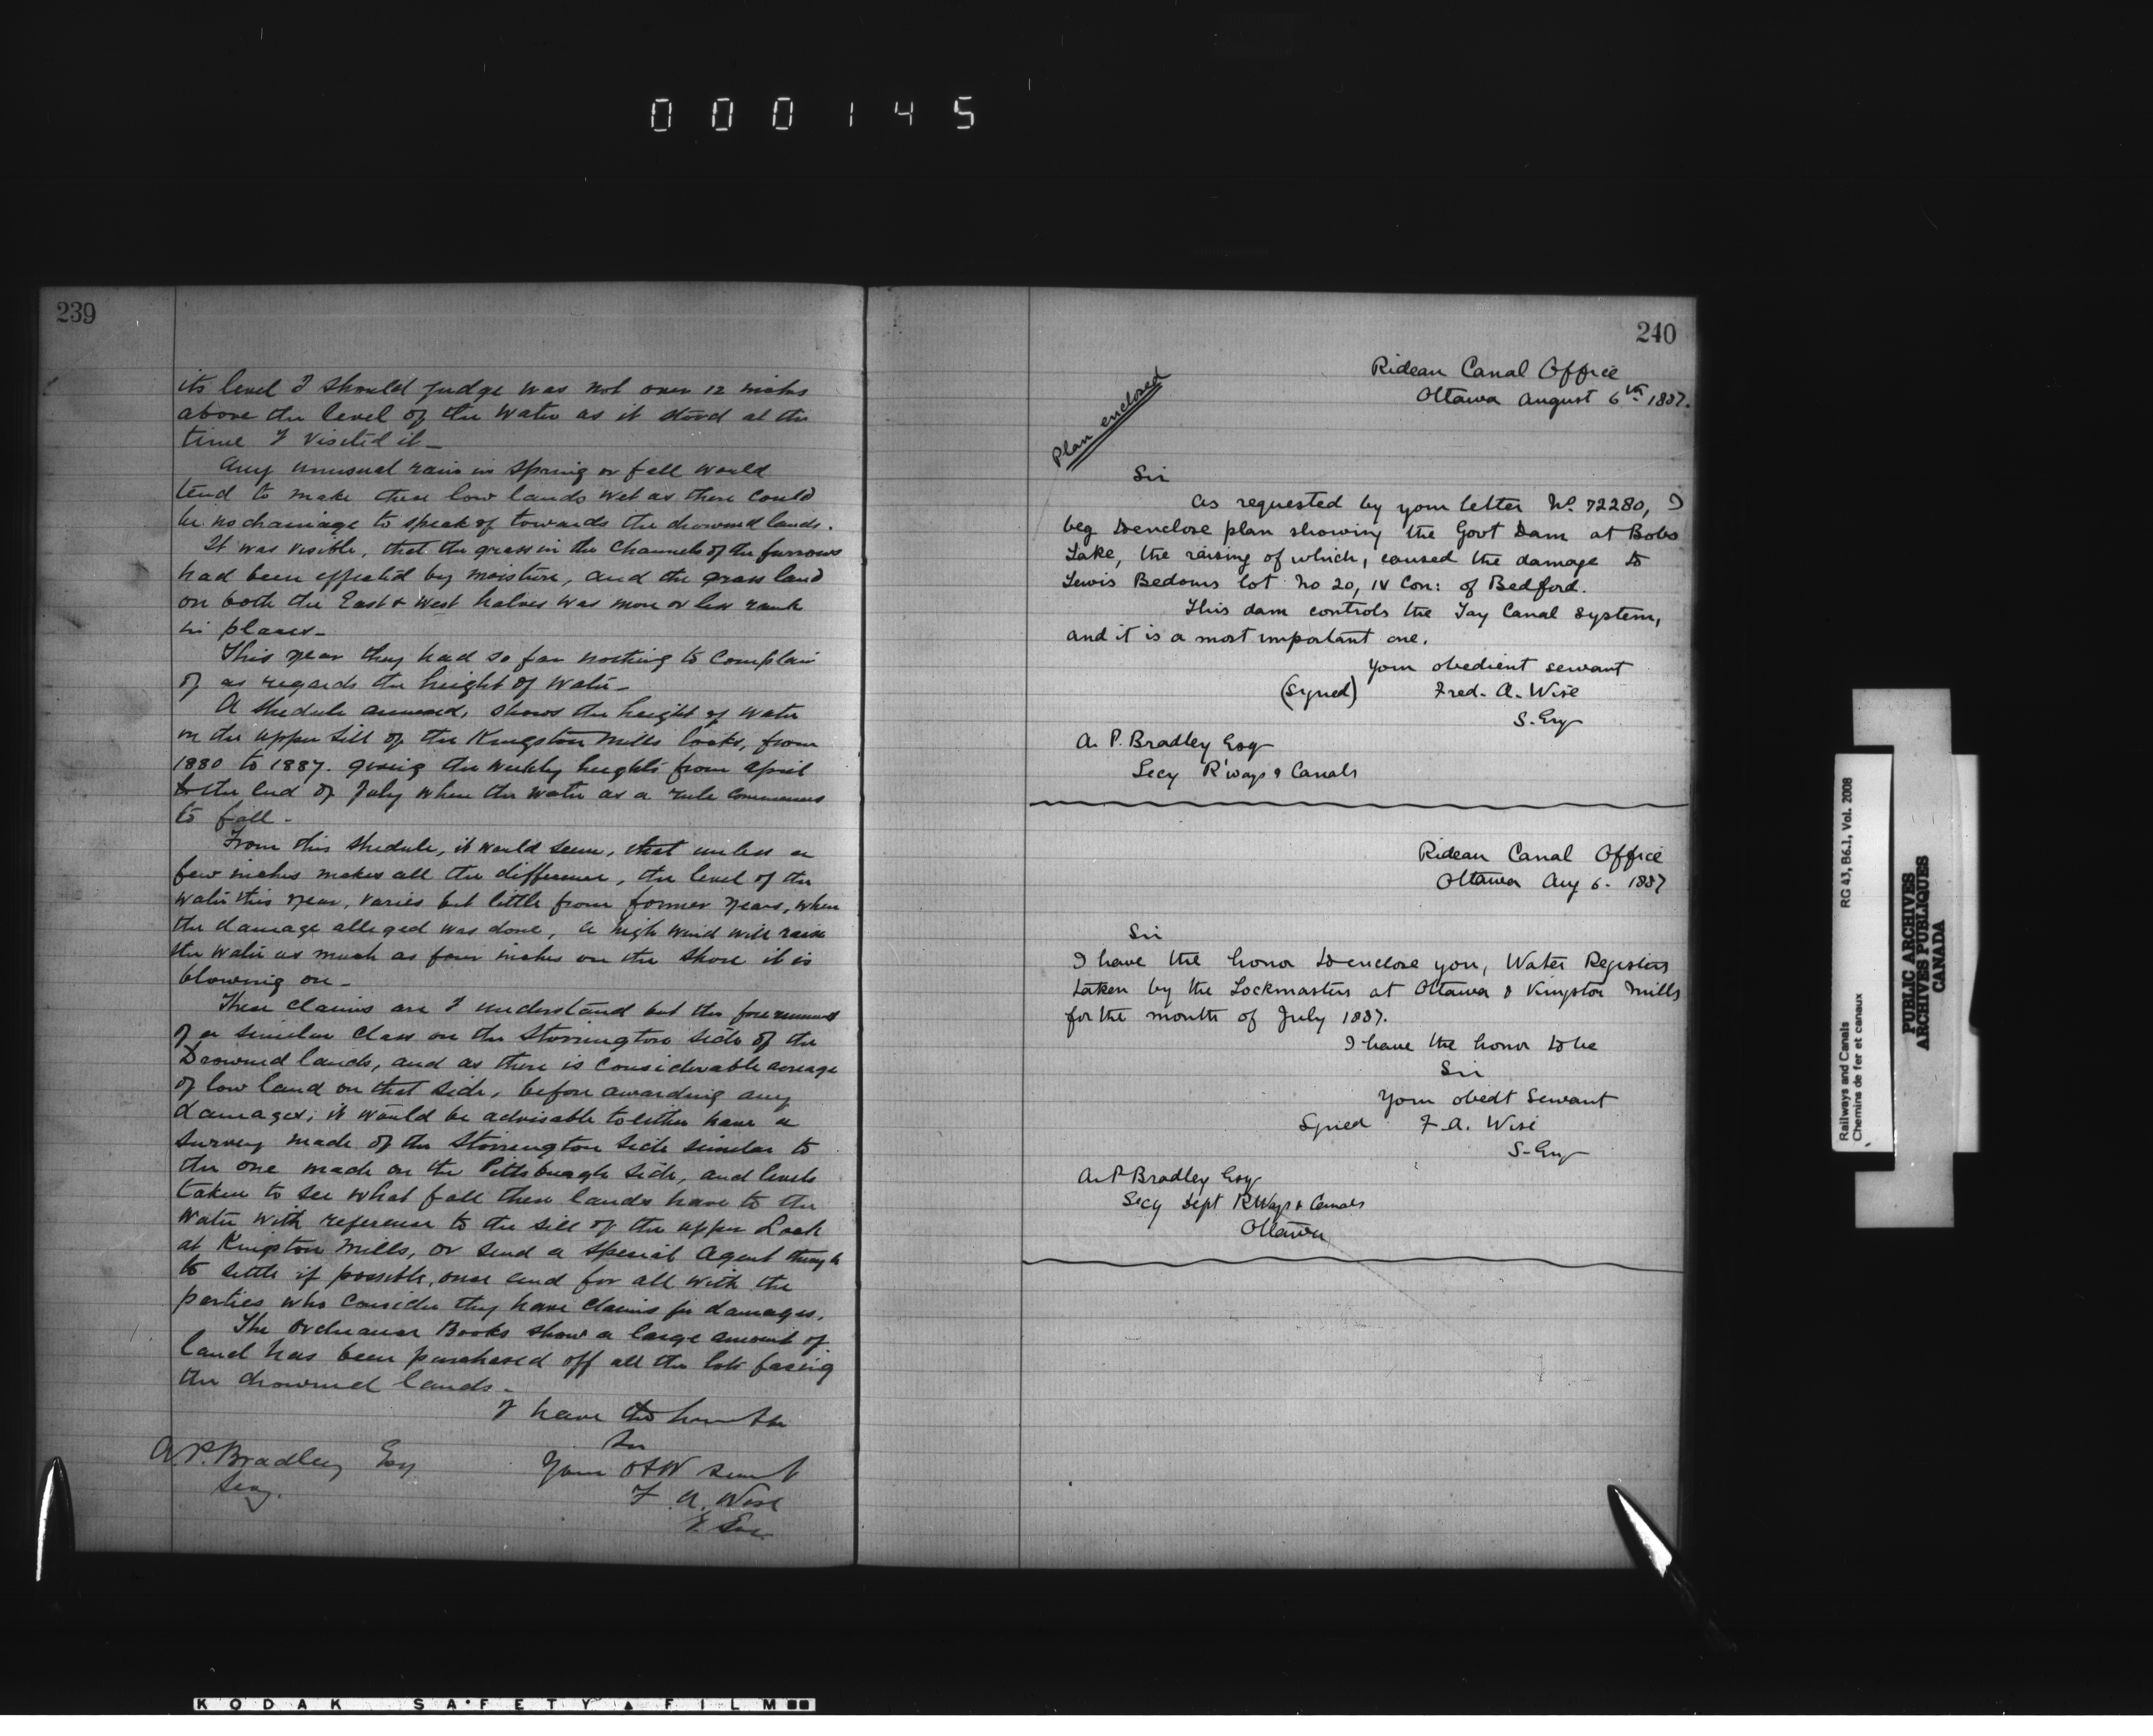 000145
239
its level I should judge was not over 12 inches
above the level of the water as it stood at the
time I visited it_
Any unusual rain in Spring or fall would
tend to make these low lands wet as there could
be no drainage to speak of towards the drowned lands.
It was visible, that the grass in the Channels of the furrows
had been effected by moisture, and the grass land
on both the East & West halves was more or less rank
in places_
This year they had so far nothing to Complain
of as regards the height of Water_
A Shedule annexed, shows the height of Water
on the upper Sill of the Kingston Mills Locks, from
1880 to 1887. giving the weekly heights from April
to the End of July when the water as a rule commences
to fall_
From this Shedule, it would seem, that unless a
few inches makes all the difference, the level of the
Water this year, varies but little from former years, when
the damage alleged was done, a high wind will raise
the Water as much as four inches on the shore it is
blowing on_
These claims are I understand but the forerunners
of a similar Class on the Storrington Side of the
Drowned lands, and as there is Considerable acreage
of low land on that Side, before awarding any
damages, it would be advisable to either have a
Survey made of the Storrington Side similar to
the one made on the Pittsburgh Side, and levels
taken to See what fall these lands have to the
Water with reference to the Sill of the upper Lock
at Kingston Mills, or Send a Special Agent
to Settle if possible, once and for all with the
parties who Consider they have Claims for damages.
The Ordnance Books show a large amount of
land has been purchased off all the lots facing
the drowned lands_
I have the honor to be
Sir
Your Servt
F. A. Wise
A. P. Bradley Esq
Secy.
240
Plan enclosed
Rideau Canal Office
Ottawa August 6th 1887.
Sir
As requested by your letter No. 72280, I
beg to enclose plan showing the Govt Dam at Bobs
Lake, the raising of which, caused the damage to
Lewis Bedoms lot No 20, IV Con: of Bedford.
This dam controls the Tay Canal System,
and it is a most important one.
Your obedient servant
(Signed) Fred. A. Wise
S. Eng
A. P. Bradley Esq
Secy R'ways & Canals
Rideau Canal Office
Ottawa Aug 6. 1887
Sir
I have the honor to enclose you, Water Registers
taken by the Lockmasters at Ottawa & Kingston Mills
for the month of July 1887.
I have the honor to be
Sir
Your obedt Servant
Signed F. A. Wise
S. Eng
A. P. Bradley Esq
Secy Dept RWays & Canals
Ottawa
Railways and Canals
Chemins de fer et canaux
RG 43, B6.1, Vol. 2008
PUBLIC ARCHIVES
ARCHIVES PUBLIQUES
CANADA
KODAK SAFETY FILM